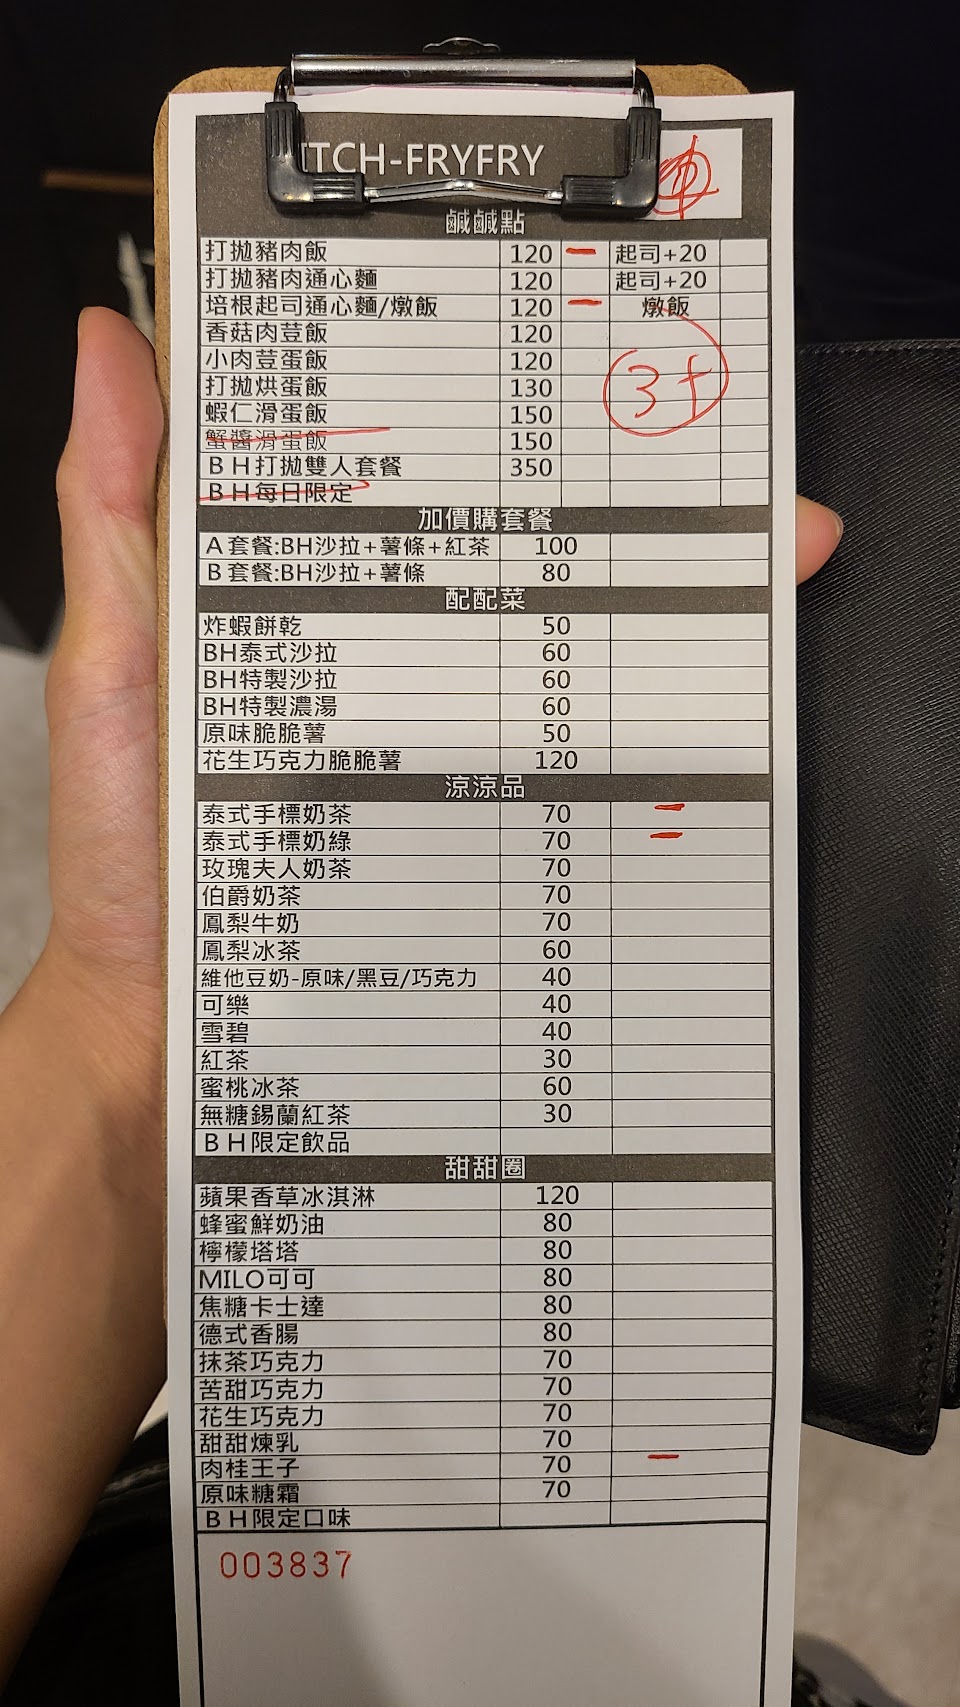 ITCH-FRYFRY
鹹鹹點
打拋豬肉飯 120 一 起司+20
打拋豬肉通心麵 120 起司+20
培根起司通心麵/燉飯 120 一 燉飯
香菇肉荳飯 120
小肉荳蛋飯 120
打拋烘蛋飯 130
3+
蝦仁滑蛋飯 150
蟹醬滑蛋飯 150
BH打拋雙人套餐 350
BH每日限定
加價購套餐
A套餐:BH沙拉+薯條+紅茶 100
B套餐:BH沙拉+薯條 80
配配菜
炸蝦餅乾 50
BH泰式沙拉 60
BH特製沙拉 60
BH特製濃湯 60
原味脆脆薯 50
花生巧克力脆脆薯 120
涼涼品
泰式手標奶茶 70 一
泰式手標奶綠 70 一
玫瑰夫人奶茶 70
伯爵奶茶 70
鳳梨牛奶 70
鳳梨冰茶 60
維他豆奶-原味/黑豆/巧克力 40
可樂 40
雪碧 40
紅茶 30
蜜桃冰茶 60
無糖錫蘭紅茶 30
BH限定飲品
甜甜圈
蘋果香草冰淇淋 120
蜂蜜鮮奶油 80
檸檬塔塔 80
MILO可可 80
焦糖卡士達 80
德式香腸 80
抹茶巧克力 70
苦甜巧克力 70
花生巧克力 70
甜甜煉乳 70
肉桂王子 70 一
原味糖霜 70
BH限定口味
003837